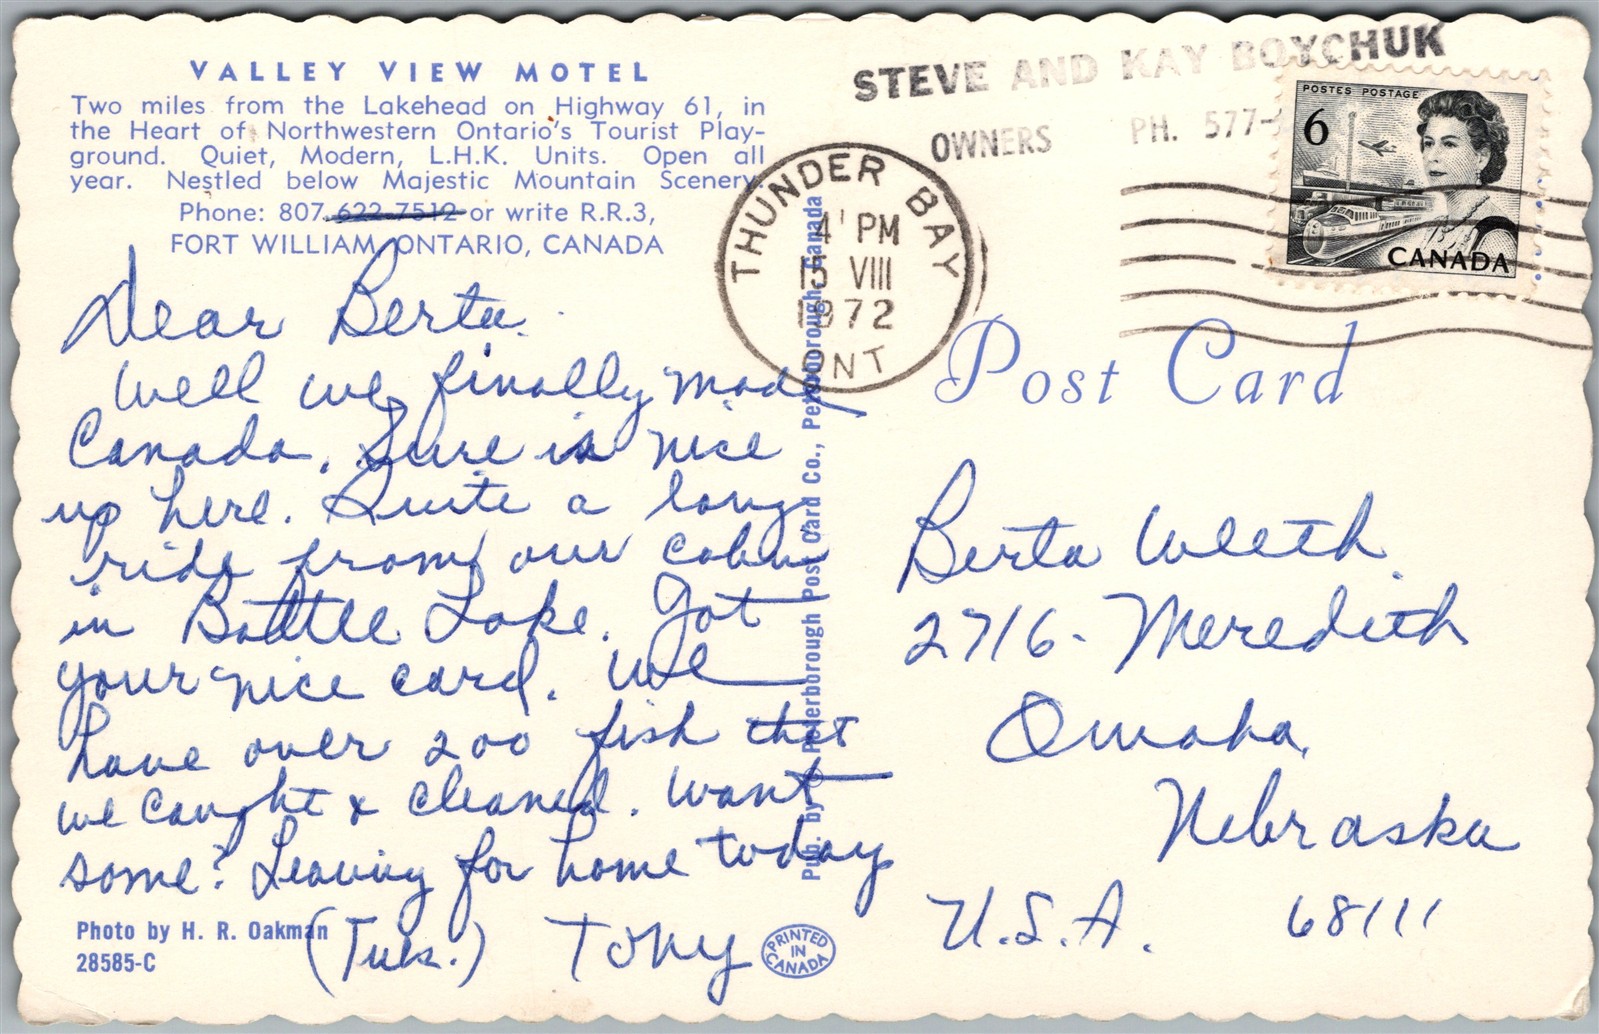 VALLEY VIEW MOTEL
Two miles from the Lakehead on Highway 61, in
the Heart of Northwestern Ontario's Tourist Play-
ground. Quiet, Modern, L.H.K. Units. Open all
year. Nestled below Majestic Mountain Scenery.
Phone: 807 622-7512 or write R.R.3,
FORT WILLIAM, ONTARIO, CANADA
Dear Berta.
Well we finally made
Canada. Sure is nice
up here. Quite a long
ride from our cabin
in Battle Lake. Got
your nice card. We
have over 200 fish that
we caught & cleaned. Want
some? Leaving for home today
(Tues.) Tony
Photo by H. R. Oakman
28585-C
PRINTED
IN
CANADA
Pub. by Peterborough Post Card Co., Peterborough, Canada
STEVE AND KAY BOYCHUK
OWNERS PH. 577-
THUNDER BAY
4 PM
VIII
1972
ONT
POSTES POSTAGE
6
CANADA
Post Card
Berta Weeth
2716 - Meredith
Omaha,
Nebraska
U.S.A. 68111